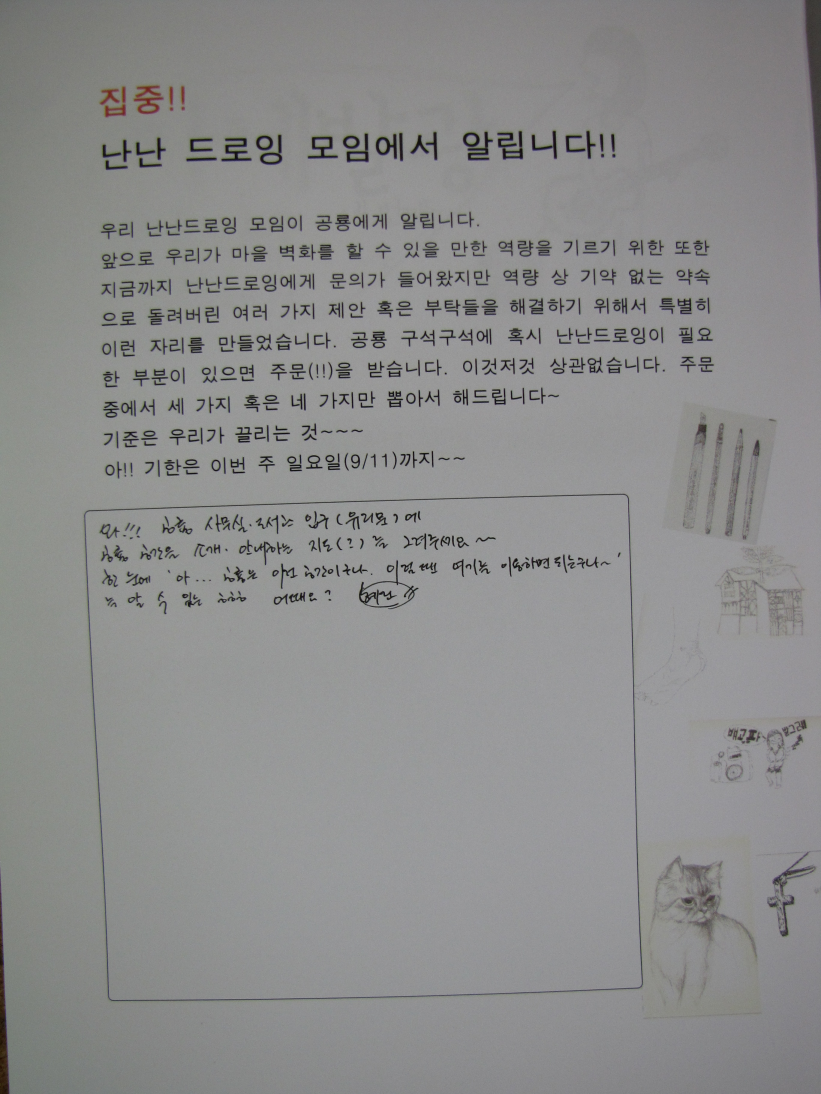 집중!!
난난 드로잉 모임에서 알립니다!!
우리 난난드로잉 모임이 공룡에게 알립니다.
앞으로 우리가 마을 벽화를 할 수 있을 만한 역량을 기르기 위한 또한
지금까지 난난드로잉에게 문의가 들어왔지만 역량 상 기약 없는 약속
으로 돌려버린 여러 가지 제안 혹은 부탁들을 해결하기 위해서 특별히
이런 자리를 만들었습니다. 공룡 구석구석에 혹시 난난드로잉이 필요
한 부분이 있으면 주문(!!)을 받습니다. 이것저것 상관없습니다. 주문
중에서 세 가지 혹은 네 가지만 뽑아서 해드립니다~
기준은 우리가 끌리는 것~~~
아!! 기한은 이번 주 일요일(9/11)까지~~
와!!! 공룡 사무실·도서관 입구(유리문)에
공룡 공간을 소개·안내하는 지도(?)를 그려주세요~
한 눈에 '아... 공룡은 이런 공간이구나. 이럴 땐 여기를 이용하면 되는구나~'
를 알 수 있는 어때요?
배고파